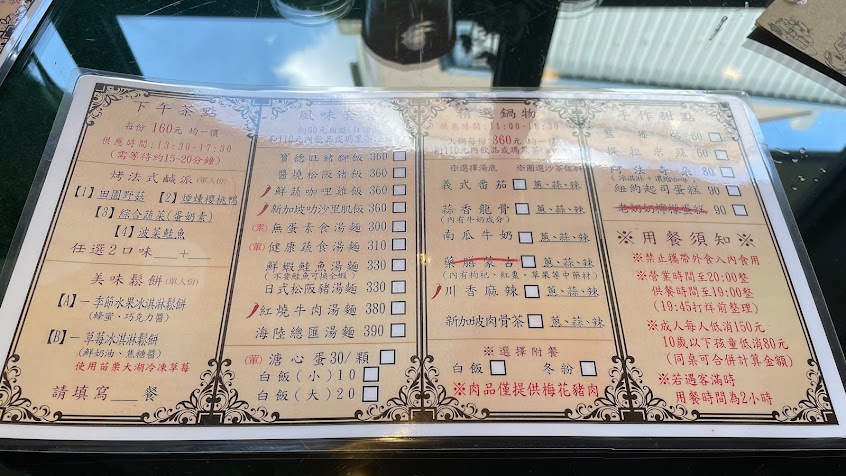 下午茶點
每份 160元 均一價
供應時間:13:30-17:30
(需等待約15-20分鐘)
烤法式鹹派(單人份)
【1】田園野菇 【2】煙燻櫻桃鴨
【3】綜合蔬菜(蛋奶素)
【4】菠菜鮭魚
任選2口味__+__
美味鬆餅(單人份)
【A】—季節水果冰淇淋鬆餅
(蜂蜜、巧克力醬)
【B】—草莓冰淇淋鬆餅
(鮮奶油、焦糖醬)
使用苗栗大湖冷凍草莓
請填寫___餐
風味套
寶德旺豬腳飯 360
醬燒松阪豬飯 360
鮮蔬咖哩雞飯 360
新加坡叻沙里肌飯 360
(素) 無蛋素食湯麵 310
(葷) 健康蔬食湯麵 310
鮮蝦鮭魚湯麵 330
(不要鮭魚可換全蝦)
日式松阪豬湯麵 330
紅燒牛肉湯麵 380
海陸總匯湯麵 390
(葷) 溏心蛋30/顆
白飯(小)10
白飯(大)20
精選鍋物
供應時間:11:00-18:30
※選擇湯底
義式番茄 蔥、蒜、辣
蒜香龍骨 蔥、蒜、辣
(內有牛奶成分)
南瓜牛奶 蔥、蒜、辣
藥膳蒙古 蔥、蒜、辣
(內有枸杞、紅棗、草菓等中藥材)
川香麻辣 蔥、蒜、辣
新加坡肉骨茶 蔥、蒜、辣
※選擇附餐
白飯 冬粉
※肉品僅提供梅花豬肉
手作甜點
60
80
80
紐約起司蛋糕 90
老奶奶檸檬蛋糕 90
※用餐須知※
※禁止攜帶外食入內食用
※營業時間至20:00整
供餐時間至19:00整
(19:45打烊前整理)
※成人每人低消150元
10歲以下孩童低消80元
(同桌可合併計算金額)
※若遇客滿時
用餐時間為2小時